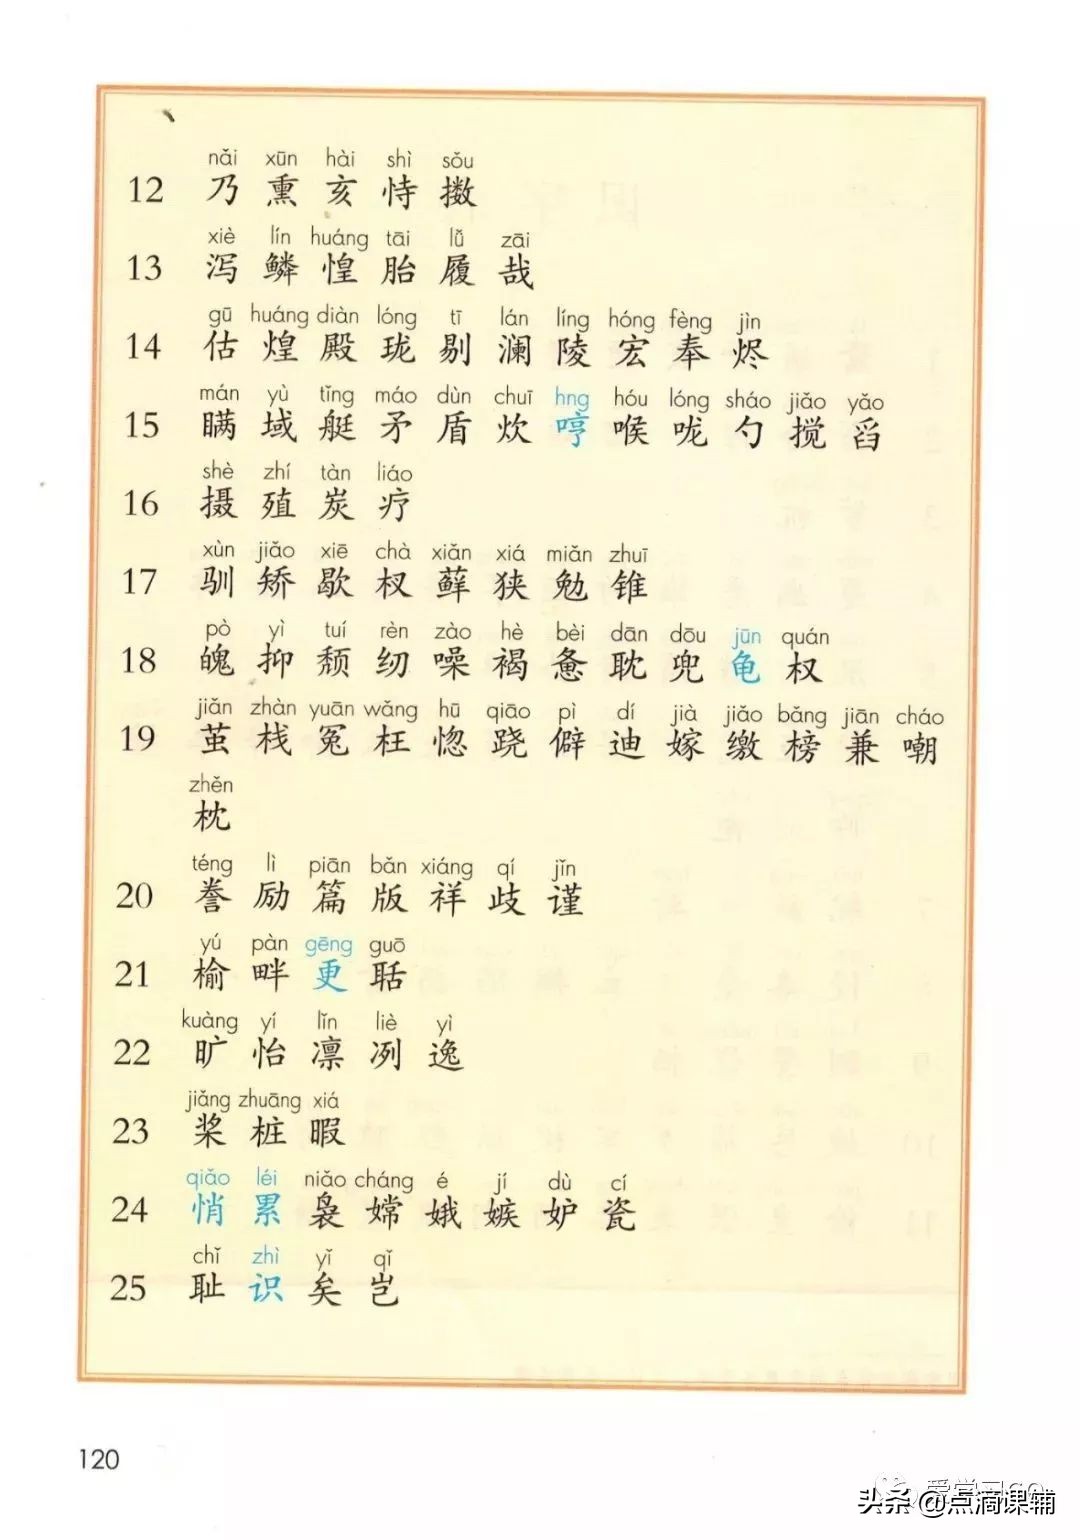 nǎi xūn hài shì sǒu
12 乃 熏 亥 恃 擞
xiè lín huáng tāi lǚ zāi
13 泻 鳞 惶 胎 履 哉
gū huáng diàn lóng tī lán líng hóng fèng jìn
14 估 煌 殿 珑 剔 澜 陵 宏 奉 烬
mán yù tǐng máo dùn chuī hng hóu lóng sháo jiǎo yǎo
15 瞒 域 艇 矛 盾 炊 哼 喉 咙 勺 搅 舀
shè zhí tàn liáo
16 摄 殖 炭 疗
xùn jiǎo xiē chà xiǎn xiá miǎn zhuī
17 驯 矫 歇 杈 藓 狭 勉 锥
pò yì tuí rèn zào hè bèi dān dōu jūn quán
18 魄 抑 颓 纫 噪 褐 惫 耽 兜 龟 权
jiǎn zhàn yuān wǎng hū qiāo pì dí jià jiǎo bǎng jiān cháo
19 茧 栈 冤 枉 惚 跷 僻 迪 嫁 缴 榜 兼 嘲
zhěn
枕
téng lì piān bǎn xiáng qí jǐn
20 誊 励 篇 版 祥 歧 谨
yú pàn gēng guō
21 榆 畔 更 聒
kuàng yí lǐn liè yì
22 旷 怡 凛 冽 逸
jiǎng zhuāng xiá
23 桨 桩 暇
qiǎo léi niǎo cháng é jí dù cí
24 悄 累 袅 嫦 娥 嫉 妒 瓷
chǐ zhì yǐ qǐ
25 耻 识 矣 岂
120
头条 @点滴课辅